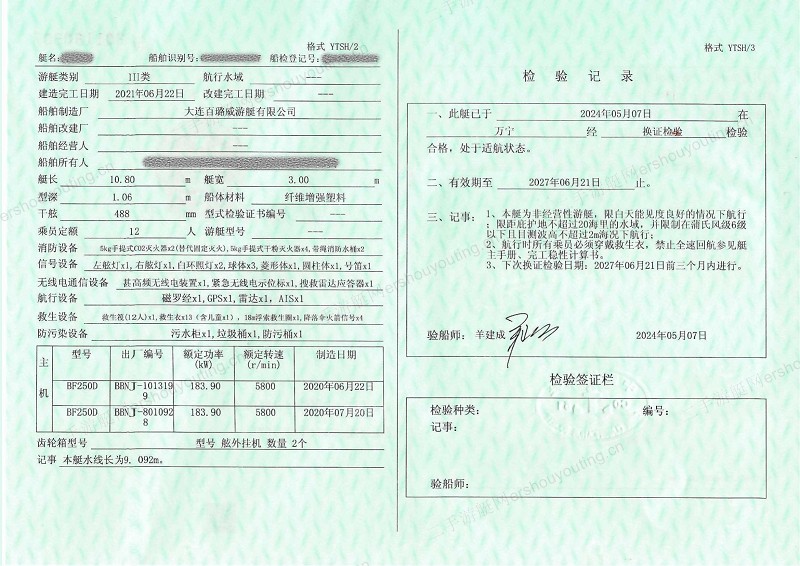 格式 YTSH/2
艇名: 船舶识别号: 船检登记号:
游艇类别 III类 航行水域 ---
建造完工日期 2021年06月22日 改建完工日期 ---
船舶制造厂 大连百璐威游艇有限公司
船舶改建厂 ---
船舶经营人 ---
船舶所有人
艇长 10.80 m 艇宽 3.00 m
型深 1.06 m 船体材料 纤维增强塑料
干舷 488 mm 型式检验证书编号 ---
乘员定额 12 人 游艇型号 ---
消防设备 5kg手提式CO2灭火器x2(替代固定灭火),5kg手提式干粉灭火器x4,带绳消防水桶x2
信号设备 左舷灯x1,右舷灯x1,白环照灯x2,球体x3,菱形体x1,圆柱体x1,号笛x1
无线电通信设备 甚高频无线电装置x1,紧急无线电示位标x1,搜救雷达应答器x1
航行设备 磁罗经x1,GPSx1,雷达x1, AISx1
救生设备 救生筏(12人)x1,救生衣x13(含儿童x1),18m浮索救生圈x1,降落伞火箭信号x4
防污染设备 污水柜x1,垃圾桶x1,防污桶x1
主机 型号 出厂编号 额定功率(kW) 额定转速(r/min) 制造日期
BF250D BBNJ-1013199 183.90 5800 2020年06月22日
BF250D BBNJ-8010928 183.90 5800 2020年07月20日
齿轮箱型号 型号 舷外挂机 数量 2个
记事 本艇水线长为9.092m。
格式 YTSH/3
检验记录
一、此艇已于 2024年05月07日 在
万宁 经 换证检验 检验
合格，处于适航状态。
二、有效期至 2027年06月21日 止。
三、记事: 1、本艇为非经营性游艇，限白天能见度良好的情况下航行
;限距庇护地不超过20海里的水域，并限制在蒲氏风级6级
以下且目测波高不超过2m海况下航行;
2、航行时所有乘员必须穿戴救生衣，禁止全速回航参见艇
主手册、完工稳性计算书。
3、下次换证检验日期: 2027年06月21日前三个月内进行。
验船师: 羊建成 2024年05月07日
检验签证栏
检验种类: 编号:
记事:
验船师:
二手游艇网ershouyouting.cn